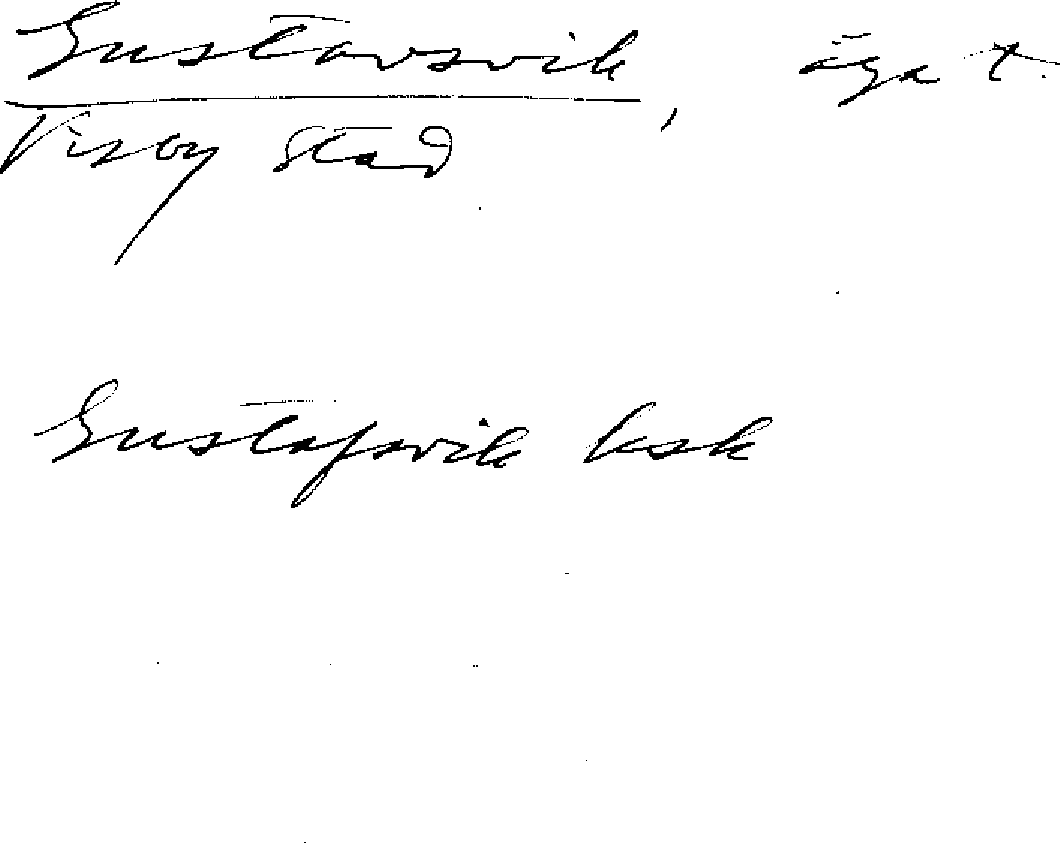 Gustavsvik, äga t.
Visby stad
Gustafsvik ksk